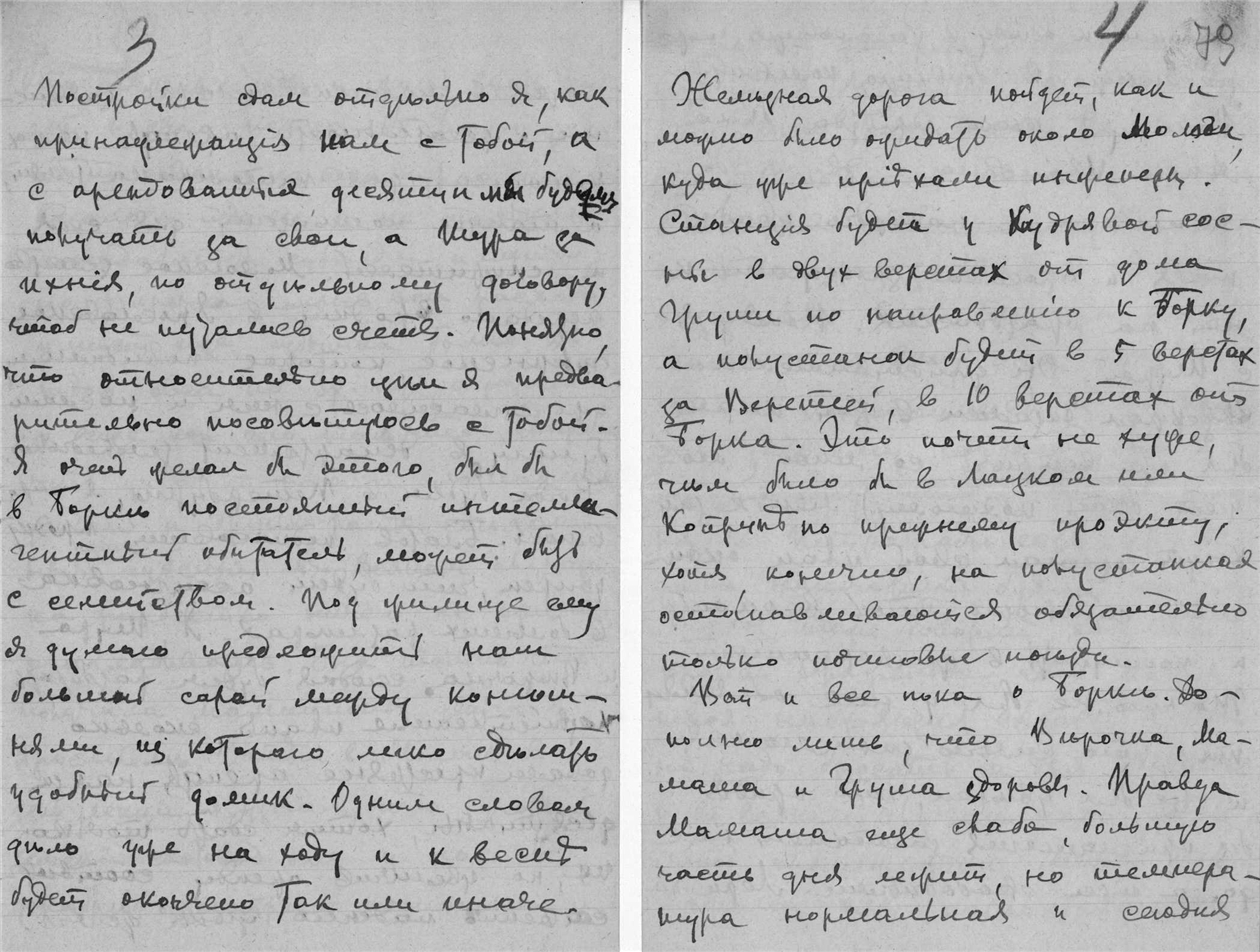 3
Постройки сдам отдѣльно я, как
принадлежащія нам с Тобой, а
с арендованія десятин мы будем
получать за свои, а Шура за
ихнія, по отдѣльному договору,
чтоб не путались счеты. Понятно,
что относительно цѣны я предва-
рительно посовѣтуюсь с Тобой.
Я очень желал бы этого, был бы
в Боркѣ постоянный интелли-
гентный обитатель, может быть
с семейством. Под жилище ему
я думаю предложить наш
большой сарай между конюш-
нями, из которого легко сдѣлать
удобный домик. Одним словом
дѣло уже на ходу и к веснѣ
будет окончено так или иначе.
4 79
Желѣзная дорога пойдет, как и
можно было ожидать около Мологи,
куда уже пріѣхали инженеры.
Станція будет у Кудрявой сос-
ны в двух верстах от дома
Груши по направленію к Борку,
а полустанок будет в 5 верстах
за Веретеей, в 10 верстах от
Борка. Это почти не хуже,
чѣм было бы в Лацком или
Копринѣ по прежнему проэкту,
хотя конечно, на полустанках
останавливаются обязательно
только почтовые поѣзда.
Вот и все пока о Боркѣ. До-
полню лишь, что Вѣрочка, Ма-
маша и Груша здоровы. Правда
Мамаша еще слаба, большую
часть дня лежит, но темпера-
тура нормальная и сегодня